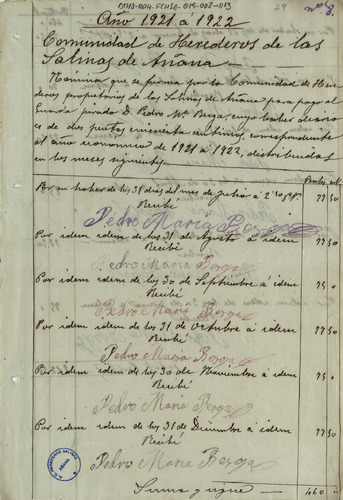 DMA-004.FCHSA-019-002-013
29
nº 8.
Año 1921 á 1922
Comunidad de Herederos de las
Salinas de Añana
Nómina que se forma por la Comunidad de Here
deros propietarios de las Salinas de Añana para pago al
Guarda jurado D. Pedro Mª Berga cuyo haber diario
es de dos pesetas cincuenta céntimos, correspondiente
al año economico de 1921 á 1922, distribuidas
en los meses siguientes
Pesetas cts
Por su haber de los 31 dias del mes de Julio á 2'50 pts. 77 50
Recibí
Pedro María Berga
Por idem idem de los 31 de Agosto á idem 77 50
Recibí
Pedro María Berga
Por idem idem de los 30 de Septiembre á idem 75 "
Recibí
Pedro María Berga
Por idem idem de los 31 de Octubre á idem 77 50
Recibí
Pedro María Berga
Por idem idem de los 30 de Noviembre á idem 75 "
Recibí
Pedro María Berga
Por idem idem de los 31 de Diciembre á idem 77 50
Recibí
Pedro María Berga
Suma y sigue 460 "